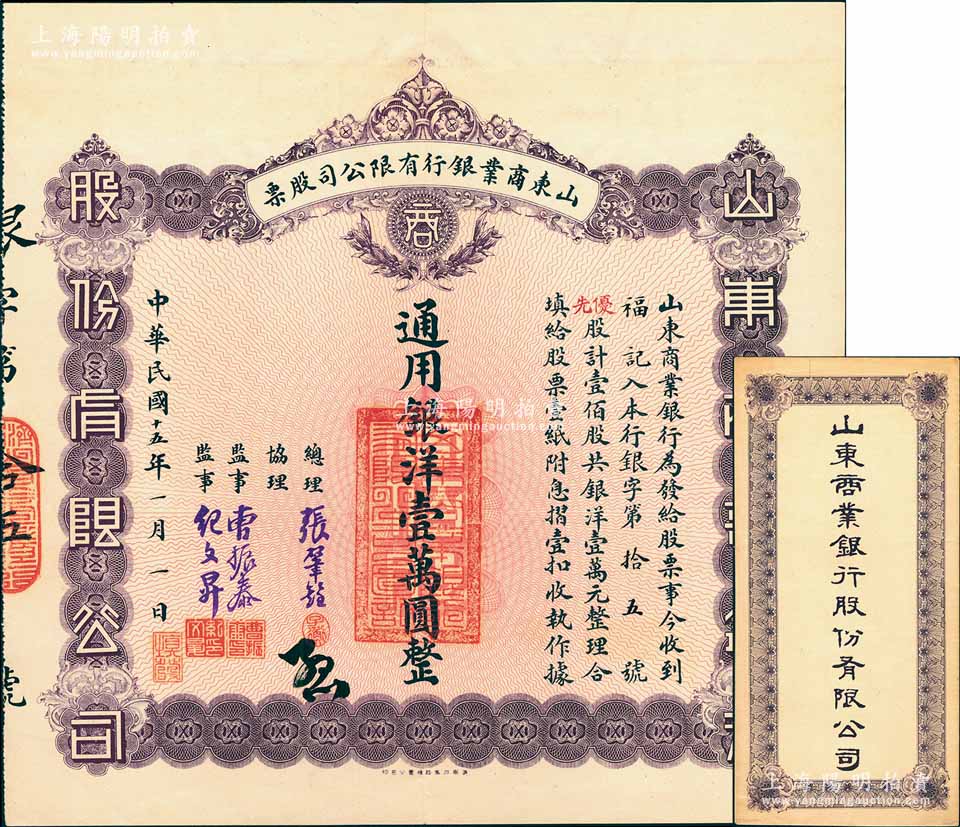 上海陽明拍賣
www.yangmingauction.com
山東商業銀行有限公司股票
商
山東
股份有限公司
山東商業銀行為發給股票事今收到
福記入本行銀字第拾五號
優先股計壹佰股共銀洋壹萬元整理合
填給股票壹紙附息摺壹扣收執作據
通用銀洋壹萬圓整
總理 張肇銓
協理
監事 曹振泰
監事 紀文昇
中華民國十五年一月一日
拾五
號
上海陽明拍賣
www.yangmingauction.com
山東商業銀行股份有限公司
上海陽明拍賣
www.yangmingauction.com